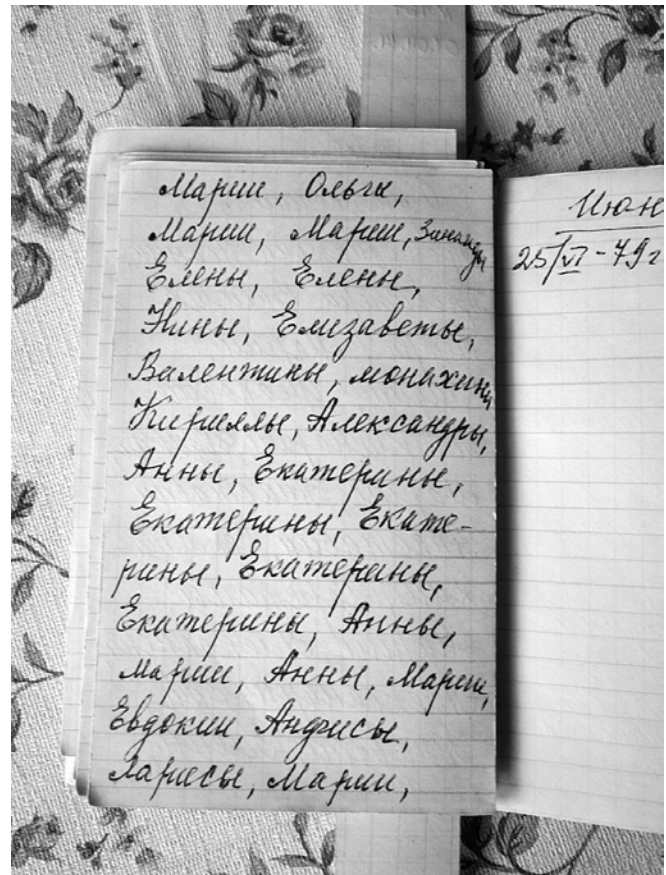 Марии, Ольги,
Марии, Марии, Зинаиды
Елены, Елены,
Нины, Елизаветы,
Валентины, монахини
Кириллы, Александры,
Анны, Екатерины,
Екатерины, Екате-
рины, Екатерины,
Екатерины, Анны,
Марии, Анны, Марии,
Евдокии, Анфисы,
Ларисы, Марии,
Июн
25/VI-79г